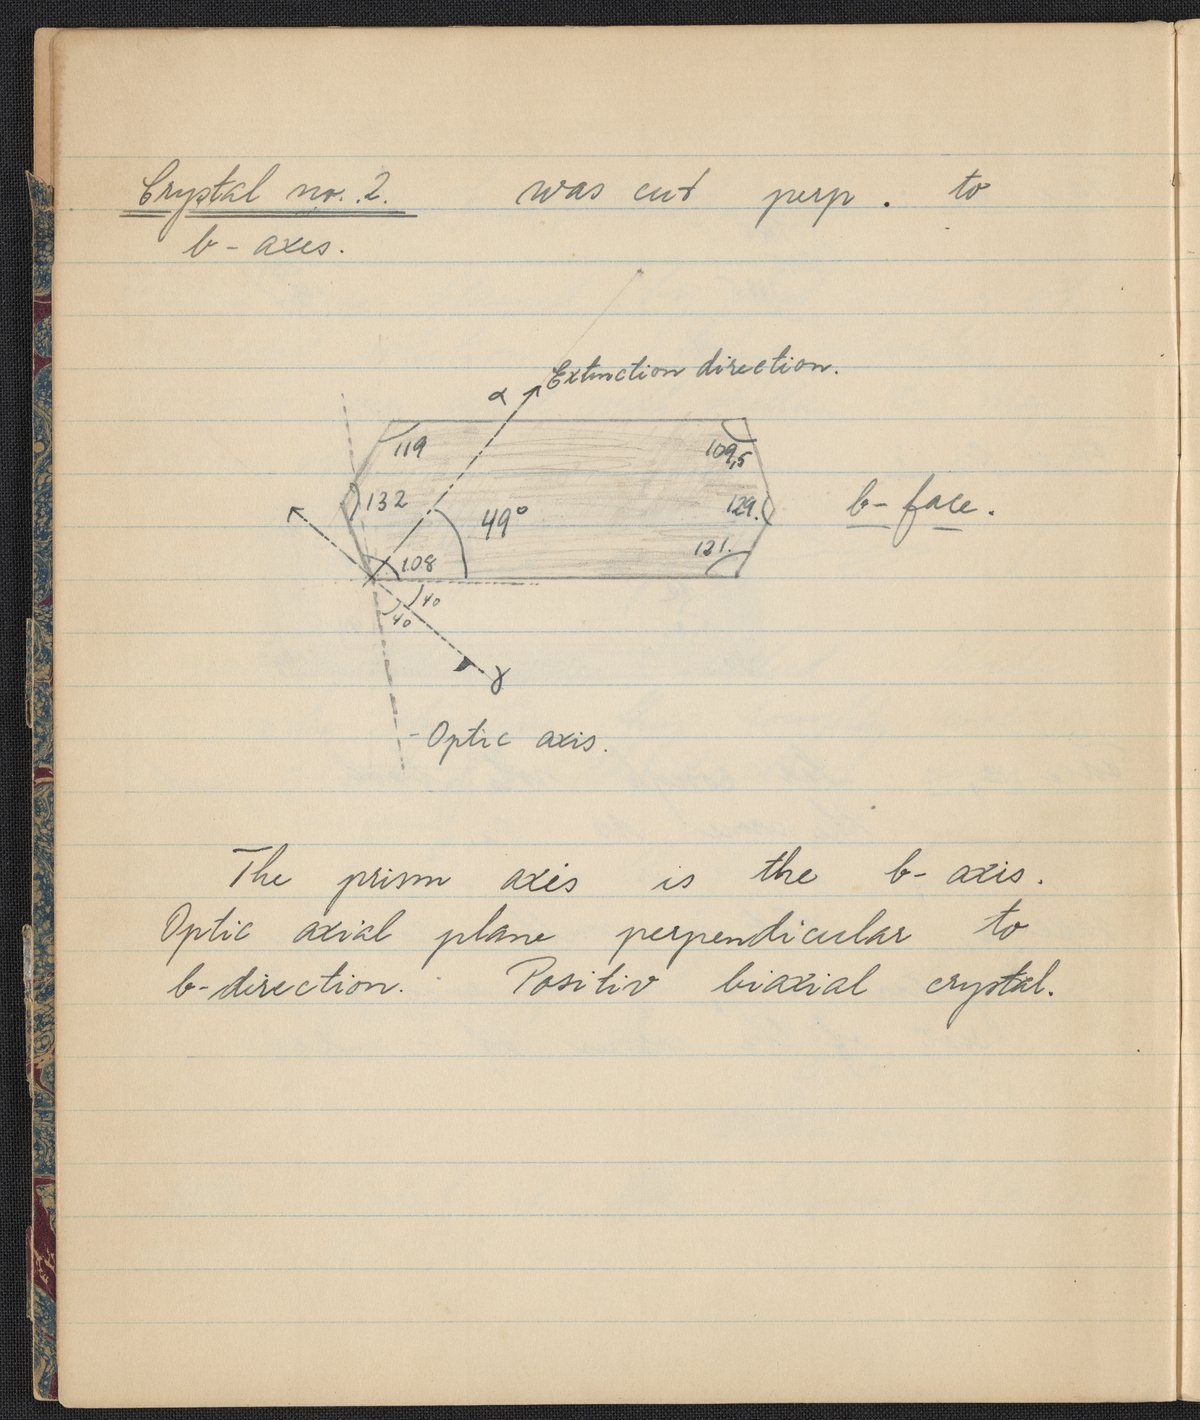 Crystal no. 2. was cut perp. to
b-axes.
Extinction direction.
α
119
109,5
132
129.
b-face.
49°
121.
108
40
40
γ
-Optic axis.
The prism axis is the b-axis.
Optic axial plane perpendicular to
b-direction. Positiv biaxial crystal.